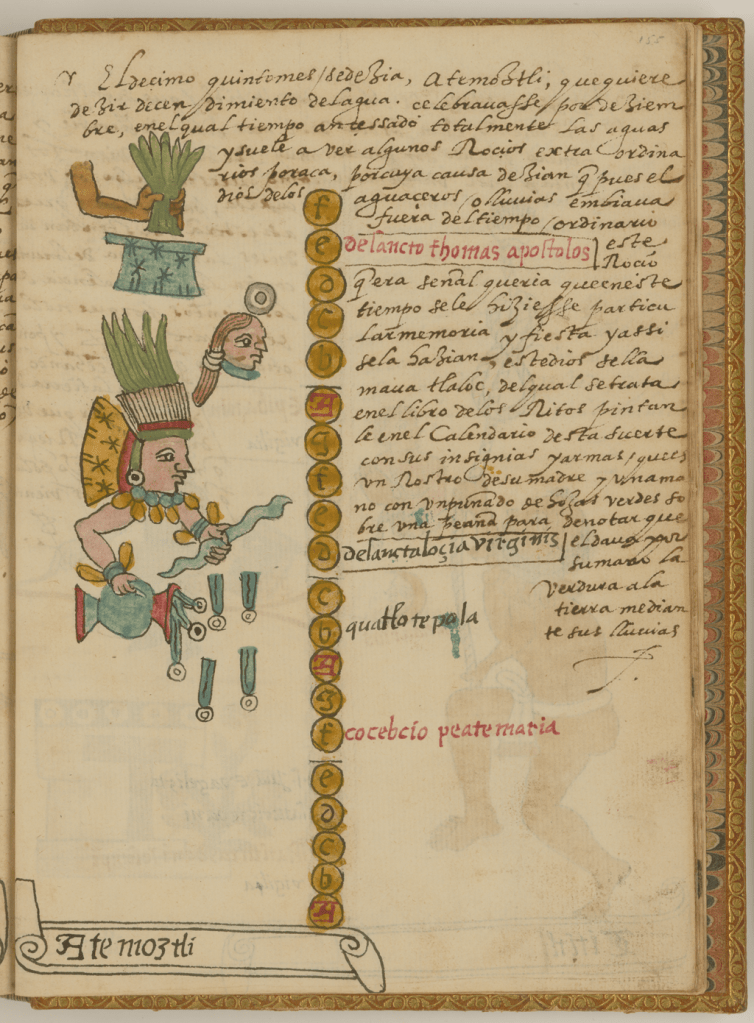 155
El decimo quinto mes / se dezia, Atemoztli; que quiere
dezir decendimiento del agua. celebravasse por deziem
bre, en el qual tiempo an cessado totalmente las aguas
y suele aver algunos Rocios extra ordina
rios poraca, por cuya causa dezian q̃ pues el
dios de los aguaceros / o lluvias embiava
fuera del tiempo / ordinario
de sancto thomas apostolos este
Rocio
q̃ era señal queria que en este
tiempo se le hiziesse particu
lar memoria y fiesta y assi
se la hazian, este dios se lla
mava tlaloc, del qual se trata
en el libro de los Ritos pintan
le en el Calendario desta suerte
con sus insignias y armas / que es
un Rostro de su madre y una ma
no con un puñado de hojas verdes so
bre una peana para denotar que
de sancta loçia virginis el dava por
su mano la
verdura a la
tierra median
te sus lluvias
quatlo tepola
cocebcio peatemaria
f
e
d
c
b
A
g
f
e
d
c
b
A
g
f
e
d
c
b
A
Atemoztli